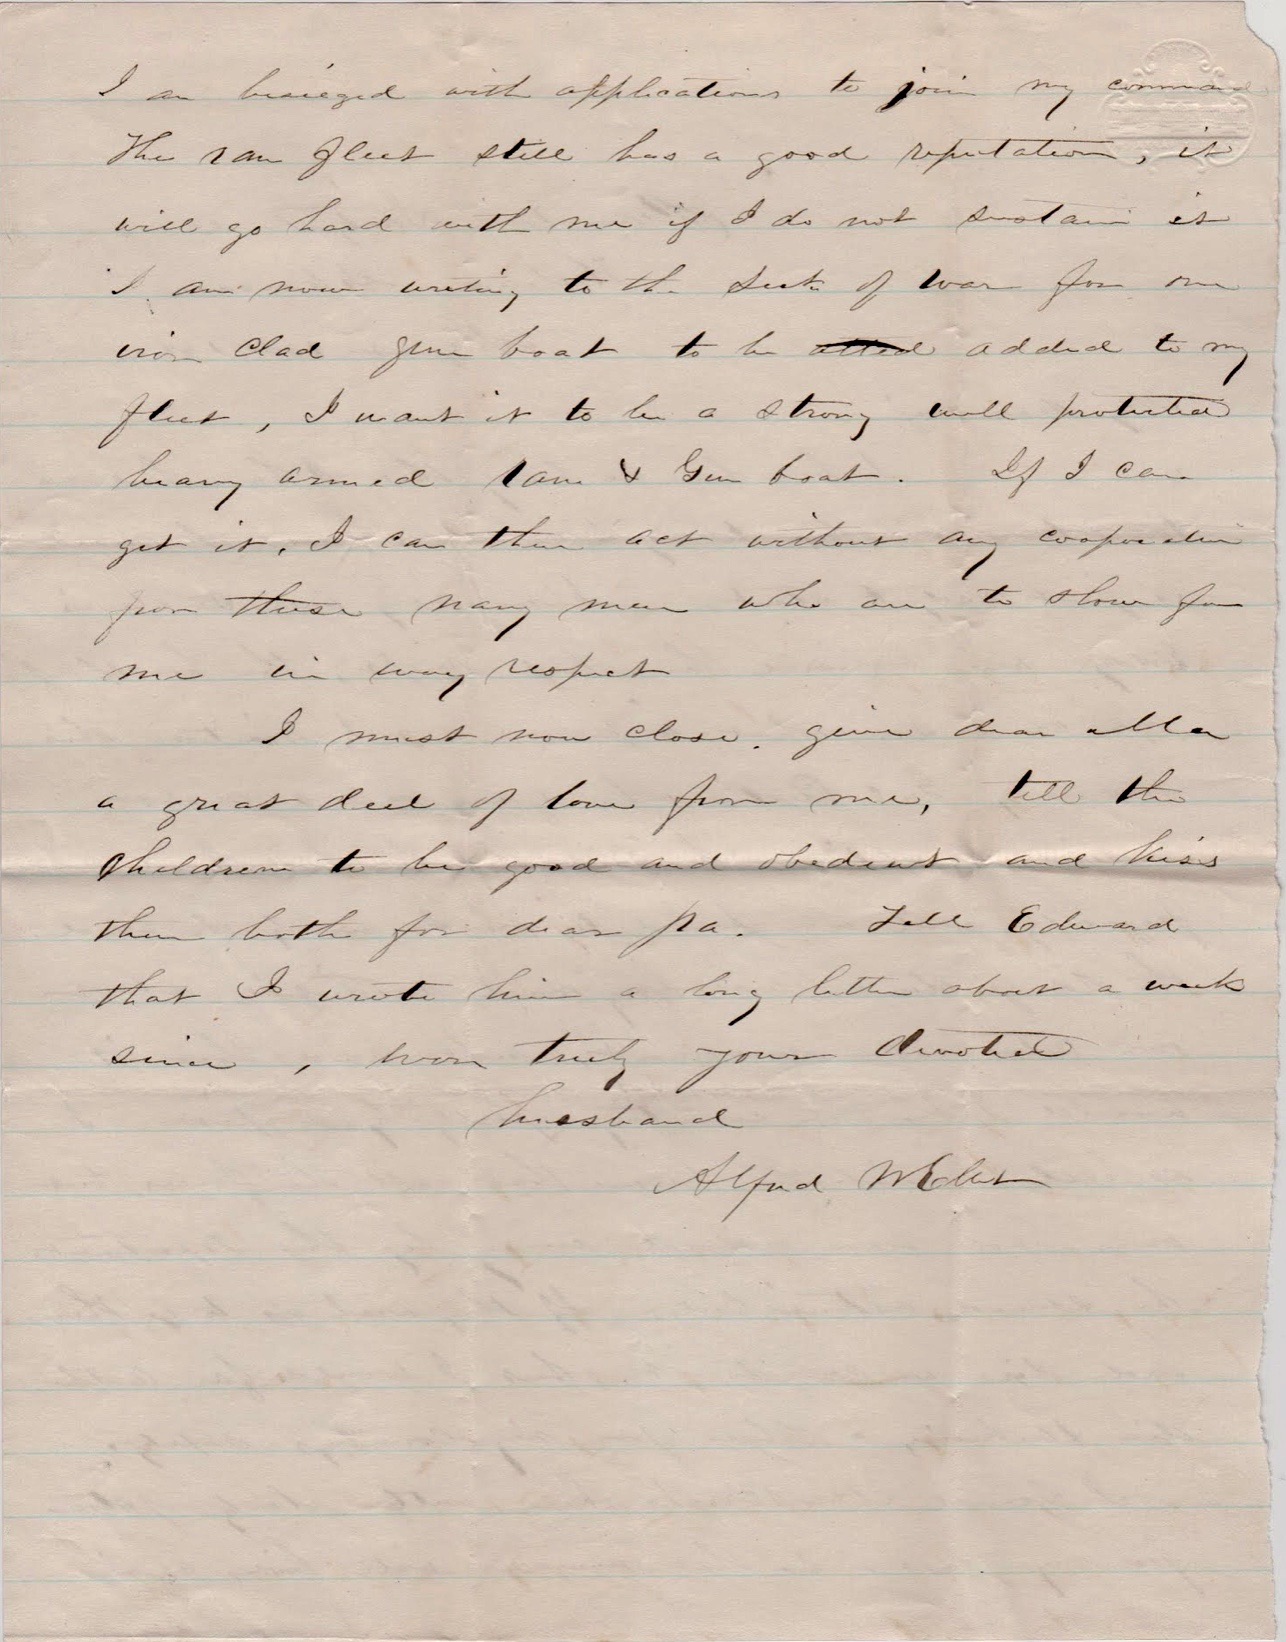 I am besieged with applications to join my command
The ram fleet still has a good reputation, it
will go hard with me if I do not sustain it
I am now writing to the Sect of war for one
iron clad gun boat to be added to my
fleet, I want it to be a strong well protected
heavy armed ram & Gun boat. If I can
get it, I can then act without any cooperation
from these navy men who are to slow for
me in every respect
I must now close. give dear alla
a great deel of love from me, tell the
children to be good and obedient and kiss
them both for dear pa. Tell Edward
that I wrote him a long letter about a week
since, Ever truly your devoted
husband
Alfred W Ellet